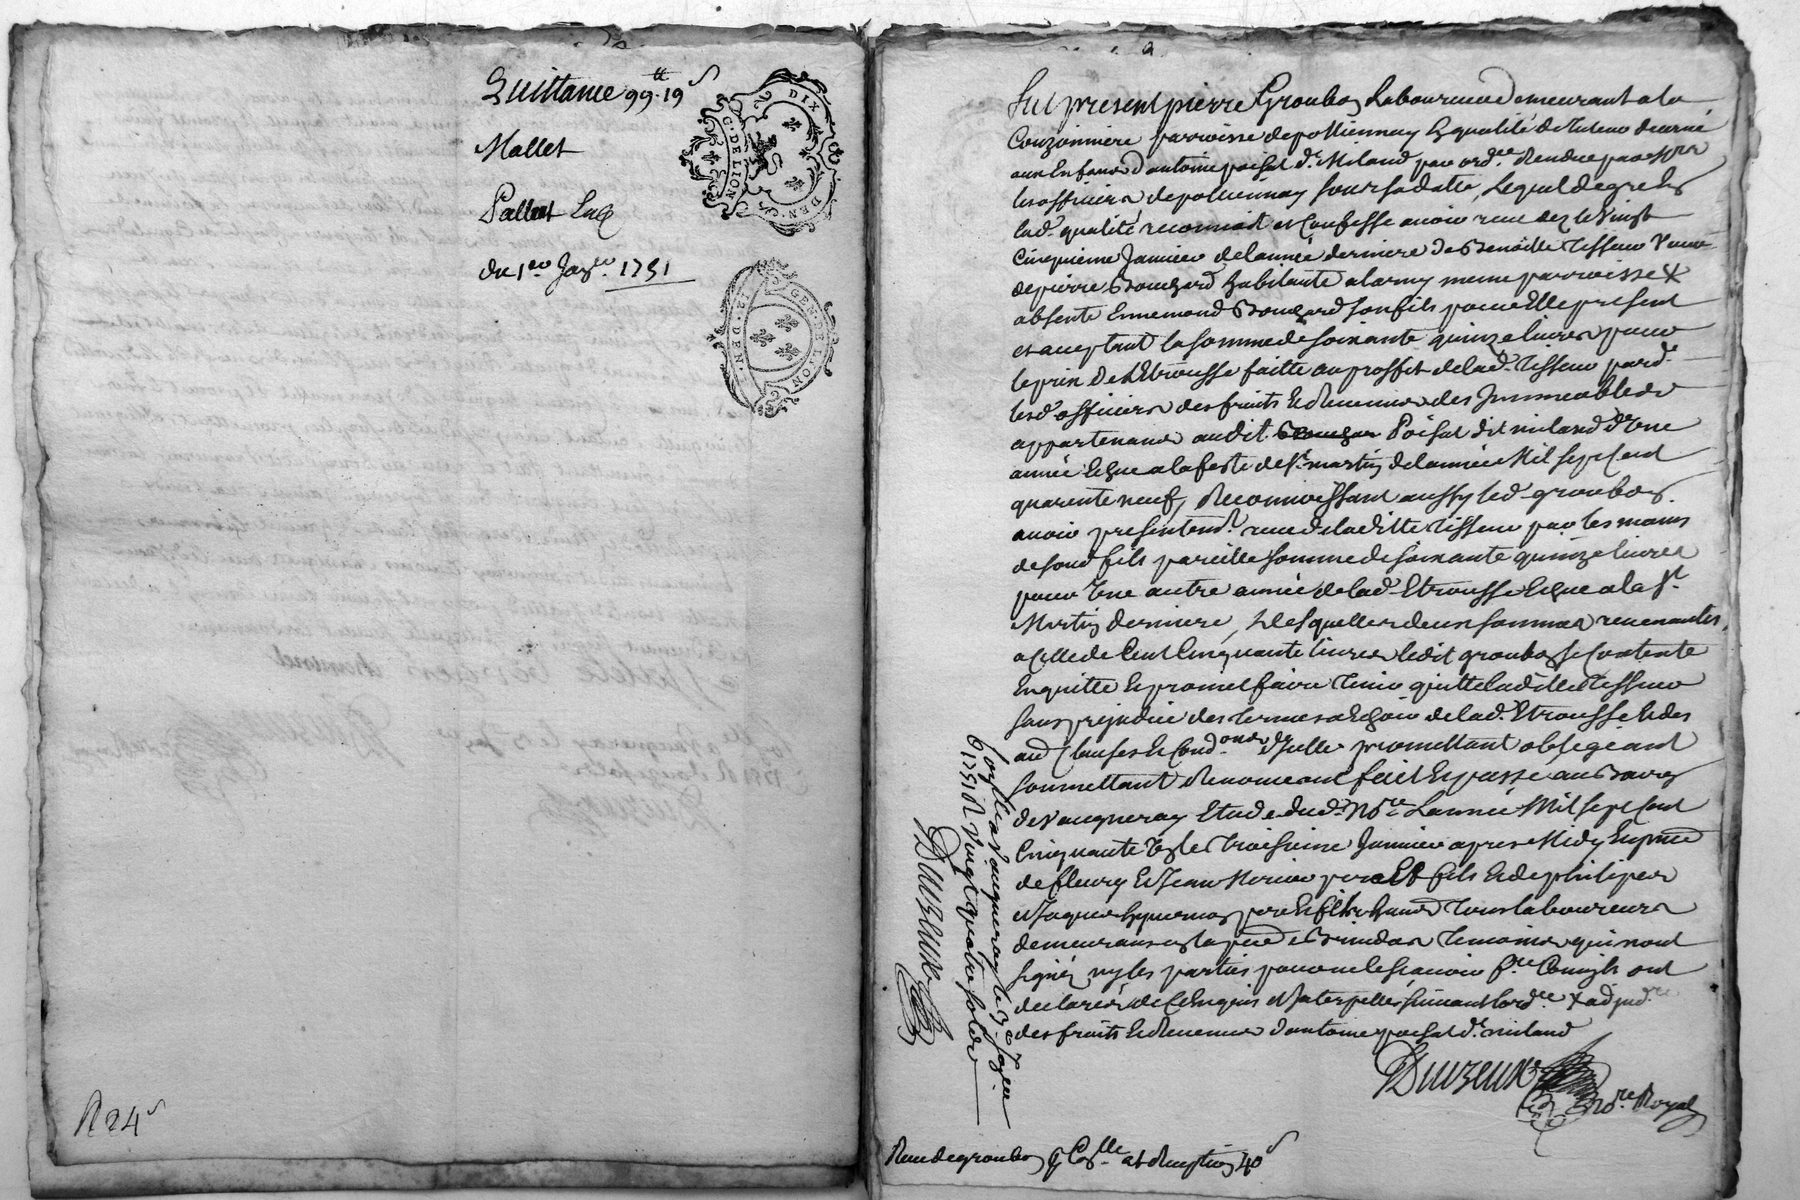 Quittance 99.tt 19 s
Mallet
Pallet
du 1er Janv. 1751
G. DE LION
DIX DEN.
GEN. DE LION
12. DEN.
R 24 s
Fut present pierre Groubon Laboureur demeurant a la
Couzonniere parroisse de polliennay En qualité de Tuteur decerné
aux Enfans d'antoine poisat dt. Miland par ordce. Rendue par
les officiers de polliennay sous sa datte, Lequel de gré En
lad. qualité reconnoit et Confesse avoir receu dez le Vingt
Cinquieme Janvier de l'année derniere de Benoitte Tisseur Veuve
de pierre Bouchard habitante a larny meme parroisse X
absente Ennemond Bouchard son fils pour Elle present
et acceptant la somme de soixante quinze livres pour
le prix de L'Etrousse faitte au proffit de lad. Tisseur par
lesd. officiers des fruits Et Revenus des Immeubles
appartenans audit Poisat dit miland d'Une
année Echue a la feste de St. martin de l'année Mil sept Cent
quarente neuf, Reconnoissant aussy led. groubon
avoir presentemt. receu de laditte Tisseur par les mains
de sond. fils pareille somme de soixante quinze livres
pour Une autre année de lad. Etrousse Echue a la St.
Martin derniere, Desquelles deux sommes revenantes
a Celle de Cent Cinquante livres ledit groubon se Contente
En quitte Et promet faire Tenir quitte laditte Tisseur
sans prejudice des Termes a Echoir de lad. Etrousse Et des
aud. Clauses Et Condons. d'Icelle promettant obligeant
soumettant Renonceant fait Et passé au Bourg
de Vaugneray Etude dud. Nore. L'année Mil sept Cent
Cinquante Un le Troisieme Janvier apres Midy En presce.
de fleury Et Jean Morier pere Et fils Et de philipes
et Jaques pere Et fils Tous laboureurs
demeurans en la pree. Brindas Temoins qui n'ont
signé ny les parties pour ne le sçavoir
declaré de Ce Enquis Et Interpellés suivant l'ordce. X adjud.re
des fruits Et Revenus d'antoine poisat dt. miland
Duvzeux
Nore. Royal
Conllé a Vaugneray le 3 Janv.
1751 R Vingt quatre sols
Duvzeux
Receu de groubon p Conlle. et Reception 40 s